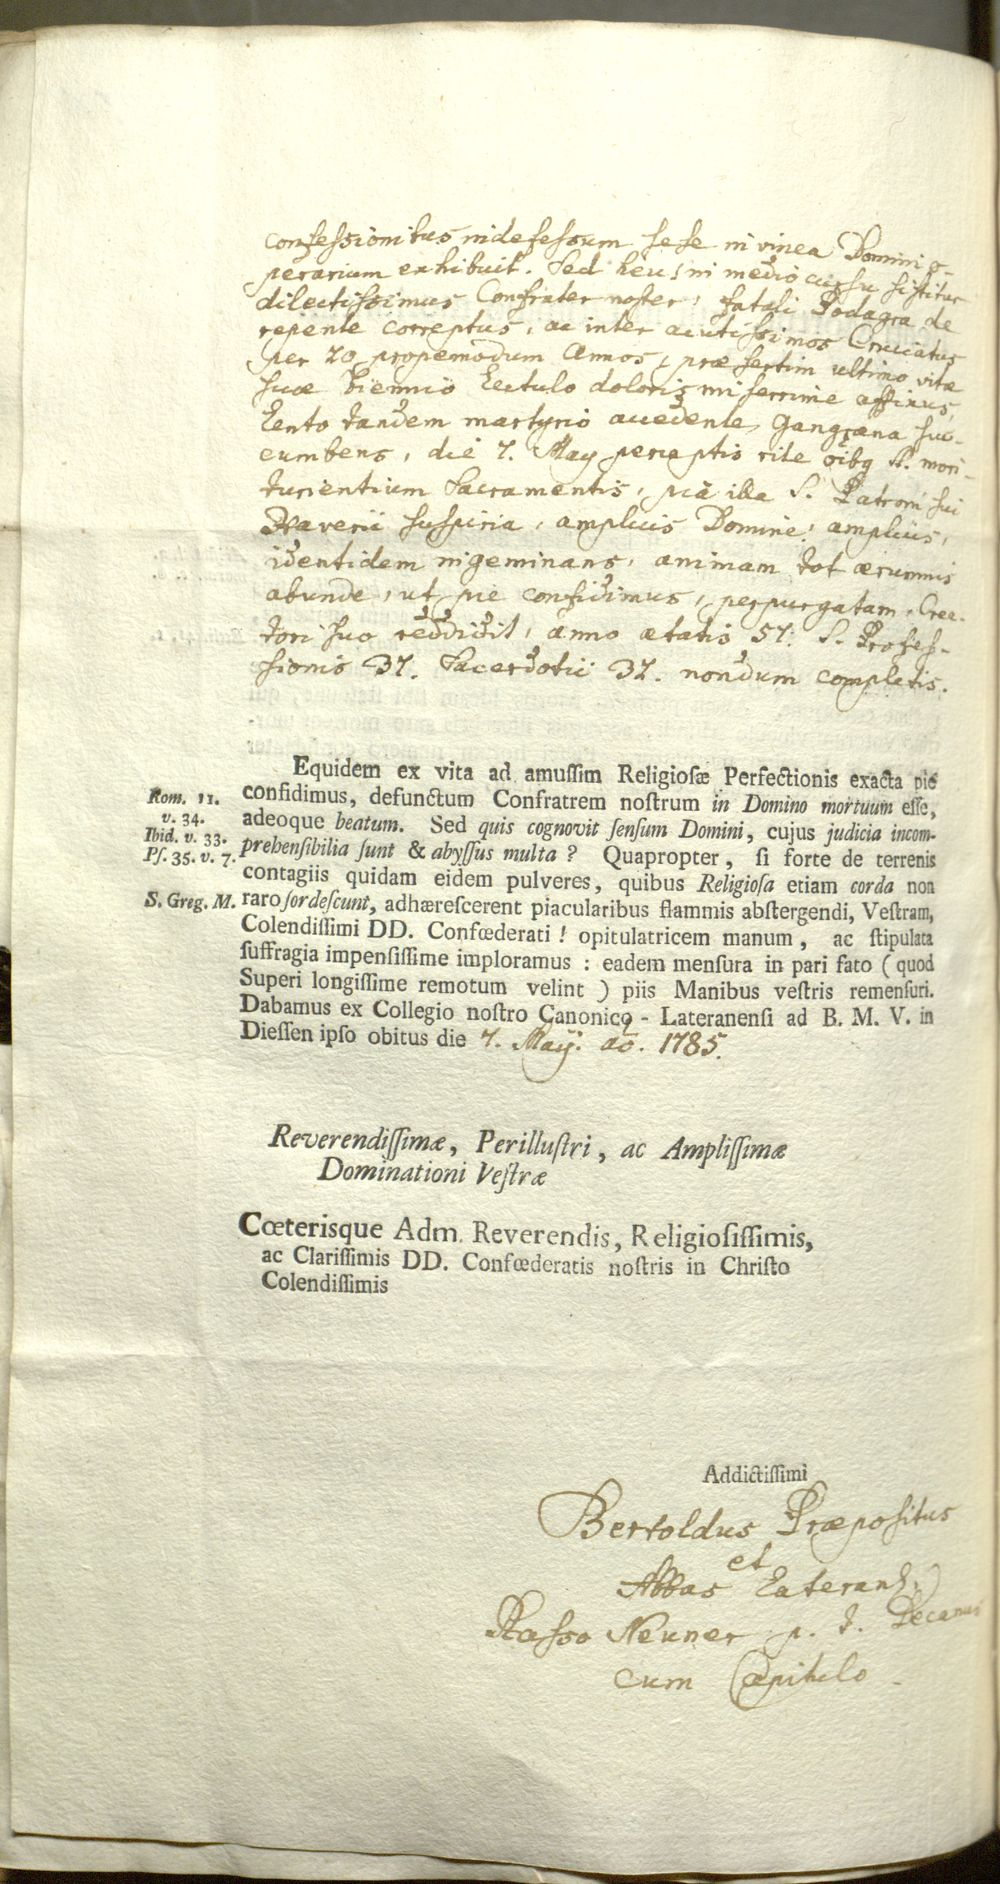 confessionibus indefessum sese in vinea Domini o-
perarium exhibuit. Sed heu! in medio cursu sistitur
dilectissimus Confrater noster, fatali Podagra de
repente correptus, ac inter acutissimos Cruciatus
per 20 propemodum Annos, præsertim ultimo vitæ
suæ biennio lectulo doloris miserrime affixus,
lento tandem martyrio accedente, Gangræna suc-
cumbens, die 7. May perceptis rite oĩbq S. mori-
turientium Sacramentis, piâ illa S. Patroni sui
Xaverii suspiria, amplius Domine! amplius,
identidem ingeminans, animam tot ærumnis
abunde, ut pie confidimus, perpurgatam, Crea-
tori suo reddidit, anno ætatis 57. S. Profes-
sionis 37. Sacerdotii 32. nondum completis.
Equidem ex vita ad amuſſim Religioſæ Perfectionis exacta pie
Rom. 11. confidimus, defunctum Confratrem noſtrum in Domino mortuum eſſe,
v. 34. adeoque beatum. Sed quis cognovit ſenſum Domini, cujus judicia incom-
Ibid. v. 33. prehenſibilia ſunt & abyſſus multa? Quapropter, ſi forte de terrenis
Pſ. 35. v. 7. contagiis quidam eidem pulveres, quibus Religioſa etiam corda non
S. Greg. M. raro ſordeſcunt, adhæreſcerent piacularibus flammis abſtergendi, Veſtram,
Colendiſſimi DD. Confœderati! opitulatricem manum, ac ſtipulata
ſuffragia impenſiſſime imploramus: eadem menſura in pari fato (quod
Superi longiſſime remotum velint) piis Manibus veſtris remenſuri.
Dabamus ex Collegio noſtro Canonico - Lateranenſi ad B. M. V. in
Dieſſen ipſo obitus die 7. Maÿ. aō. 1785.
Reverendiſſimæ, Perilluſtri, ac Ampliſſimæ
Dominationi Veſtræ
Cœterisque Adm. Reverendis, Religioſiſſimis,
ac Clariſſimis DD. Confœderatis noſtris in Chriſto
Colendiſſimis
Addictiſſimi
Bertoldus Præpositus
et
Abbas Laterans.
Rasso Neuner p. t. Decanus
cum Capitulo